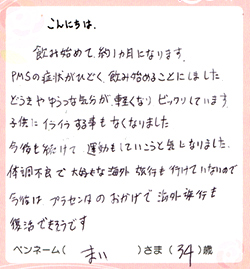 こんにちは。
飲み始めて、約1カ月になります。
PMSの症状がひどく、飲み始めることにしました
どうきやゆううつな気分が軽くなりビックリしています。
子供にイライラする事もなくなりました
今後も続けて運動もしていこうと気になりました。
体調不良で大好きな海外旅行も行けていないので
今後はプラセンタのおかげで海外旅行も
復活できそうです
ペンネーム(まい)さま(34)歳